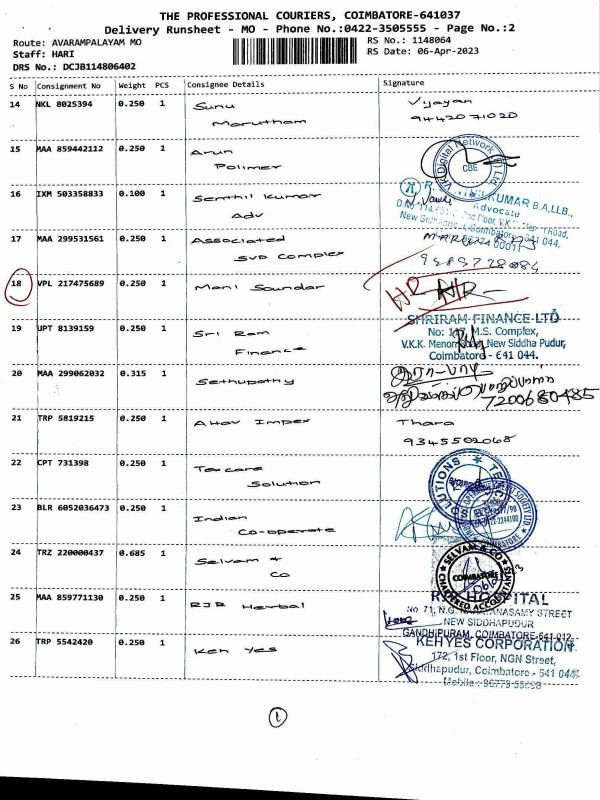 THE PROFESSIONAL COURIERS, COIMBATORE-641037
Delivery Runsheet - MO - Phone No.:0422-3505555 - Page No.:2
Route: AVARAMPALAYAM MO
RS No.: 1148064
Staff: HARI
RS Date: 06-Apr-2023
DRS No.: DCJB114806402
S No Consignment No Weight PCS Consignee Details Signature
14 NKL 8025394 0.250 1 Sunu Vijayan
Marutham 9442071020
15 MAA 859442112 0.250 1 Arun
Polimer
Digital Network
CBE
16 IXM 503358833 0.100 1 Senthil Kumar
Adv
KUMAR B.A,LL.B.,
Advocate
17 MAA 299531561 0.250 1 Associated
SVP Complex
18 VPL 217475689 0.250 1 Mani Soundar
19 UPT 8139159 0.250 1 Sri Ram
Finance
SHRIRAM FINANCE LTD
M.S. Complex,
V.K.K. Menon Road, New Siddha Pudur,
Coimbatore - 641 044.
20 MAA 299062032 0.315 1 Sethupathy
7200680485
21 TRP 5819215 0.250 1 AHav Impex Thara
9345502068
22 CPT 731398 0.250 1 Texcare
Solution
23 BLR 6052036473 0.250 1 Indian
Co-operate
24 TRZ 220000437 0.685 1 Selvam &
Co
SELVAM & CO
COIMBATORE
CHARTERED ACCOUNTANTS
25 MAA 859771130 0.250 1 RJR Herbal
No 71, N.G. NARAYANASAMY STREET
NEW SIDDHAPUDUR
GANDHIPURAM, COIMBATORE-641 012.
26 TRP 5542420 0.250 1 Keh Yes
KEHYES CORPORATION
172, 1st Floor, NGN Street,
Siddhapudur, Coimbatore - 641 044.
1